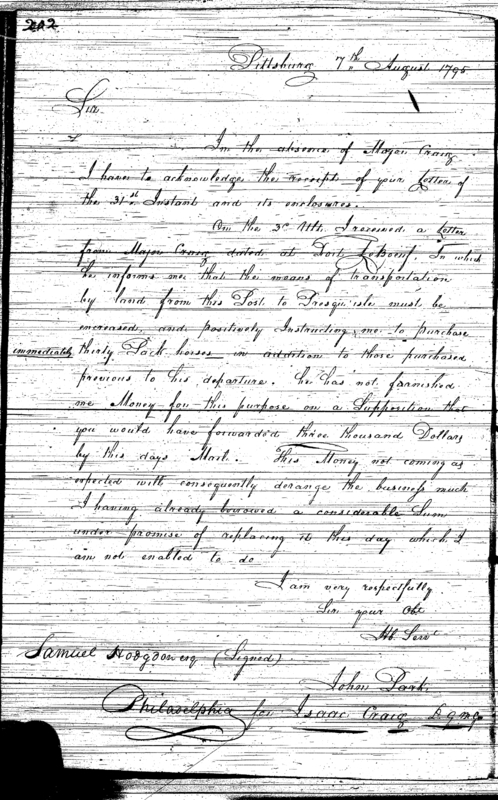 202
Pittsburg 7th August 1795
Sir
In the absence of Major Craig
I have to acknowledge the receipt of your Letter of
the 31st Instant and its enclosures.
On the 3d Ultr. I received a Letter
from Major Craig dated at Fort LeBoeuf, In which
he informs me that the means of transportation
by land from this Post to Presqu'isle must be
increased and positively Instructing me to purchase
immediately thirty Pack horses in addition to those purchased
previous to his departure. he has not furnished
me Money for this purpose on a Supposition that
you would have forwarded three thousand Dollars
by this days Mail. This Money not coming as
expected will consequently derange the business much
I having already borrowed a considerable Sum
under promise of replacing it this day which I
am not enabled to do
I am very respectfully
Sir your Obt
Hb. Servt
Samuel Hodgdon esq (Signed)
John Park
Philadelphia for Isaac Craig D.Q.M.G.